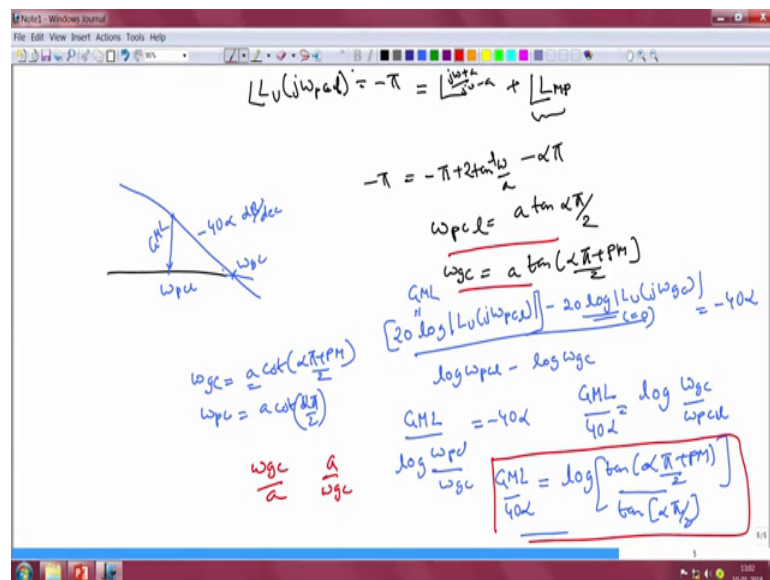 Note1 - Windows Journal
File Edit View Insert Actions Tools Help
∠L_U(jω_pcl) = -π = ∠(jω+a)/(jω-a) + ∠L_MP
-π = -π + 2tan⁻¹ω/a - απ
ω_pcl = a tan απ/2
ω_gc = a tan(απ+PM)/2
-40α dB/dec
GML
ω_pcl
ω_gc
GML
"
[20 log|L_U(jω_pcl)|] - 20 log|L_U(jω_gc)| = -40α
(=0)
log ω_pcl - log ω_gc
ω_gc = a cot(απ+PM/2)
ω_pc = a cot(απ/2)
GML / log ω_pcl/ω_gc = -40α
GML/40α = log ω_gc/ω_pcl
ω_gc/a a/ω_gc
GML/40α = log[tan(απ+PM/2) / tan[απ/2]]
6/6
5
13:02